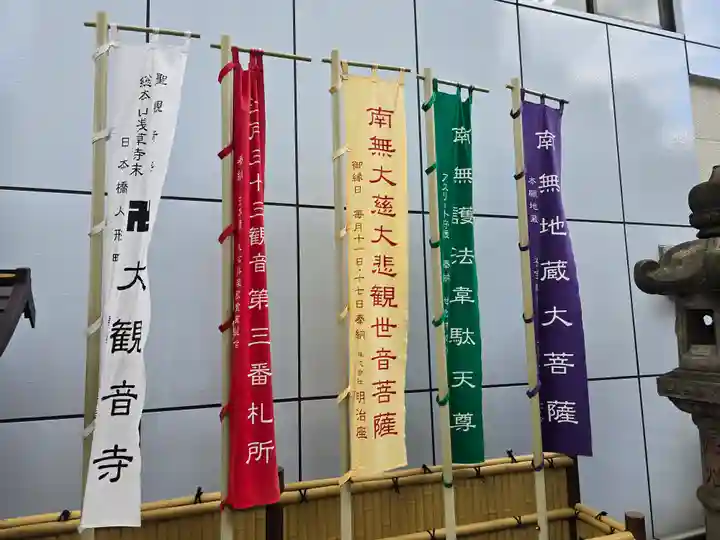 聖観
総本山浅草寺末
日本橋人形町
卍大観音寺
江戸三十三観音第三番札所
南無大慈大悲観世音菩薩
御縁日 毎月十一日・十七日奉納 株式会社 明治座
南無護法韋駄天尊
アスリート守護
南無地蔵大菩薩